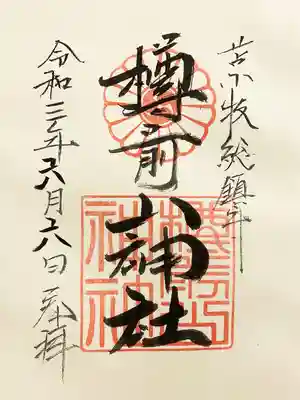 苫小牧総鎮守
樽前山神社
令和三年六月六日 奉拝